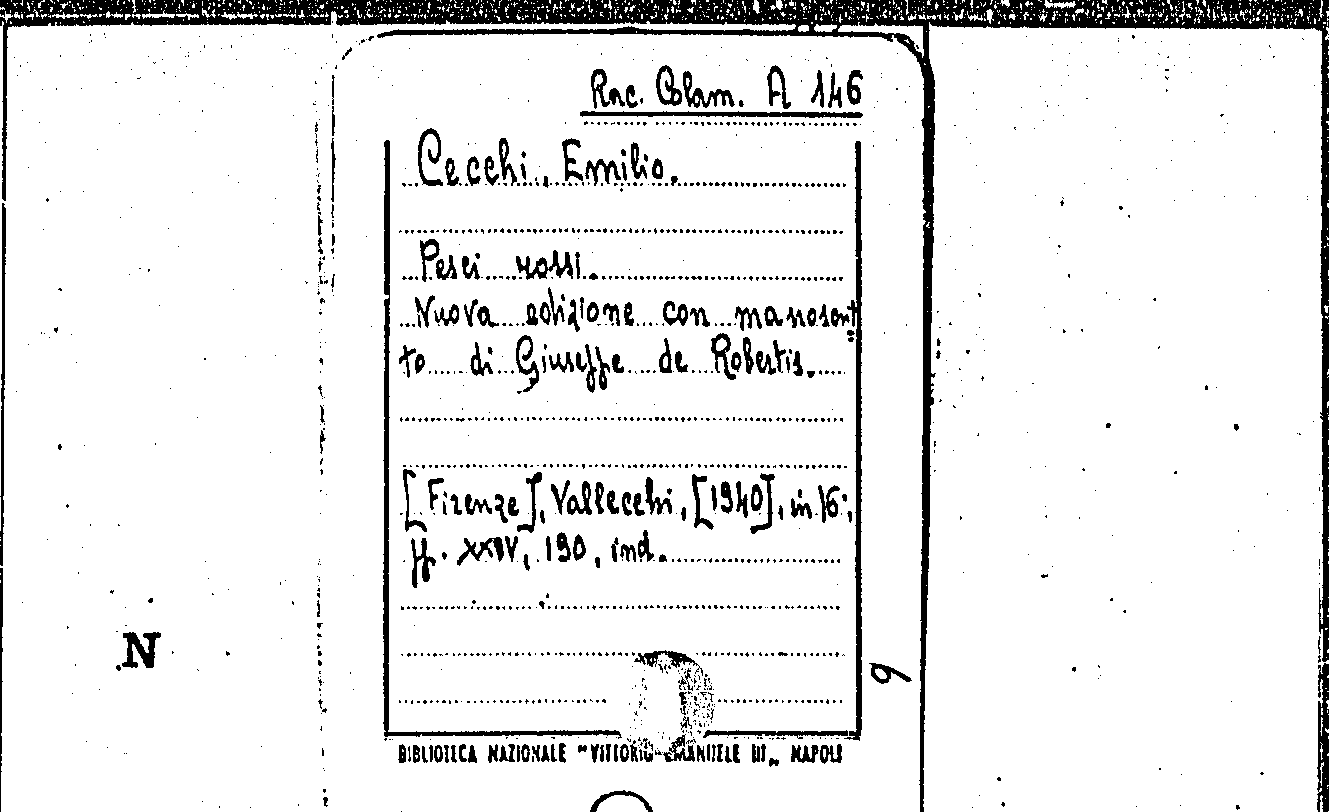 Rac. Colam. A 146
Cecchi, Emilio.
Pesci rossi.
Nuova edizione con manoscrit
to di Giuseppe de Robertis.
[Firenze], Vallecchi, [1940], in 16;
pp. XXIV, 190, ind.
N
6
BIBLIOTECA NAZIONALE "VITTORIO EMANUELE III„ NAPOLI